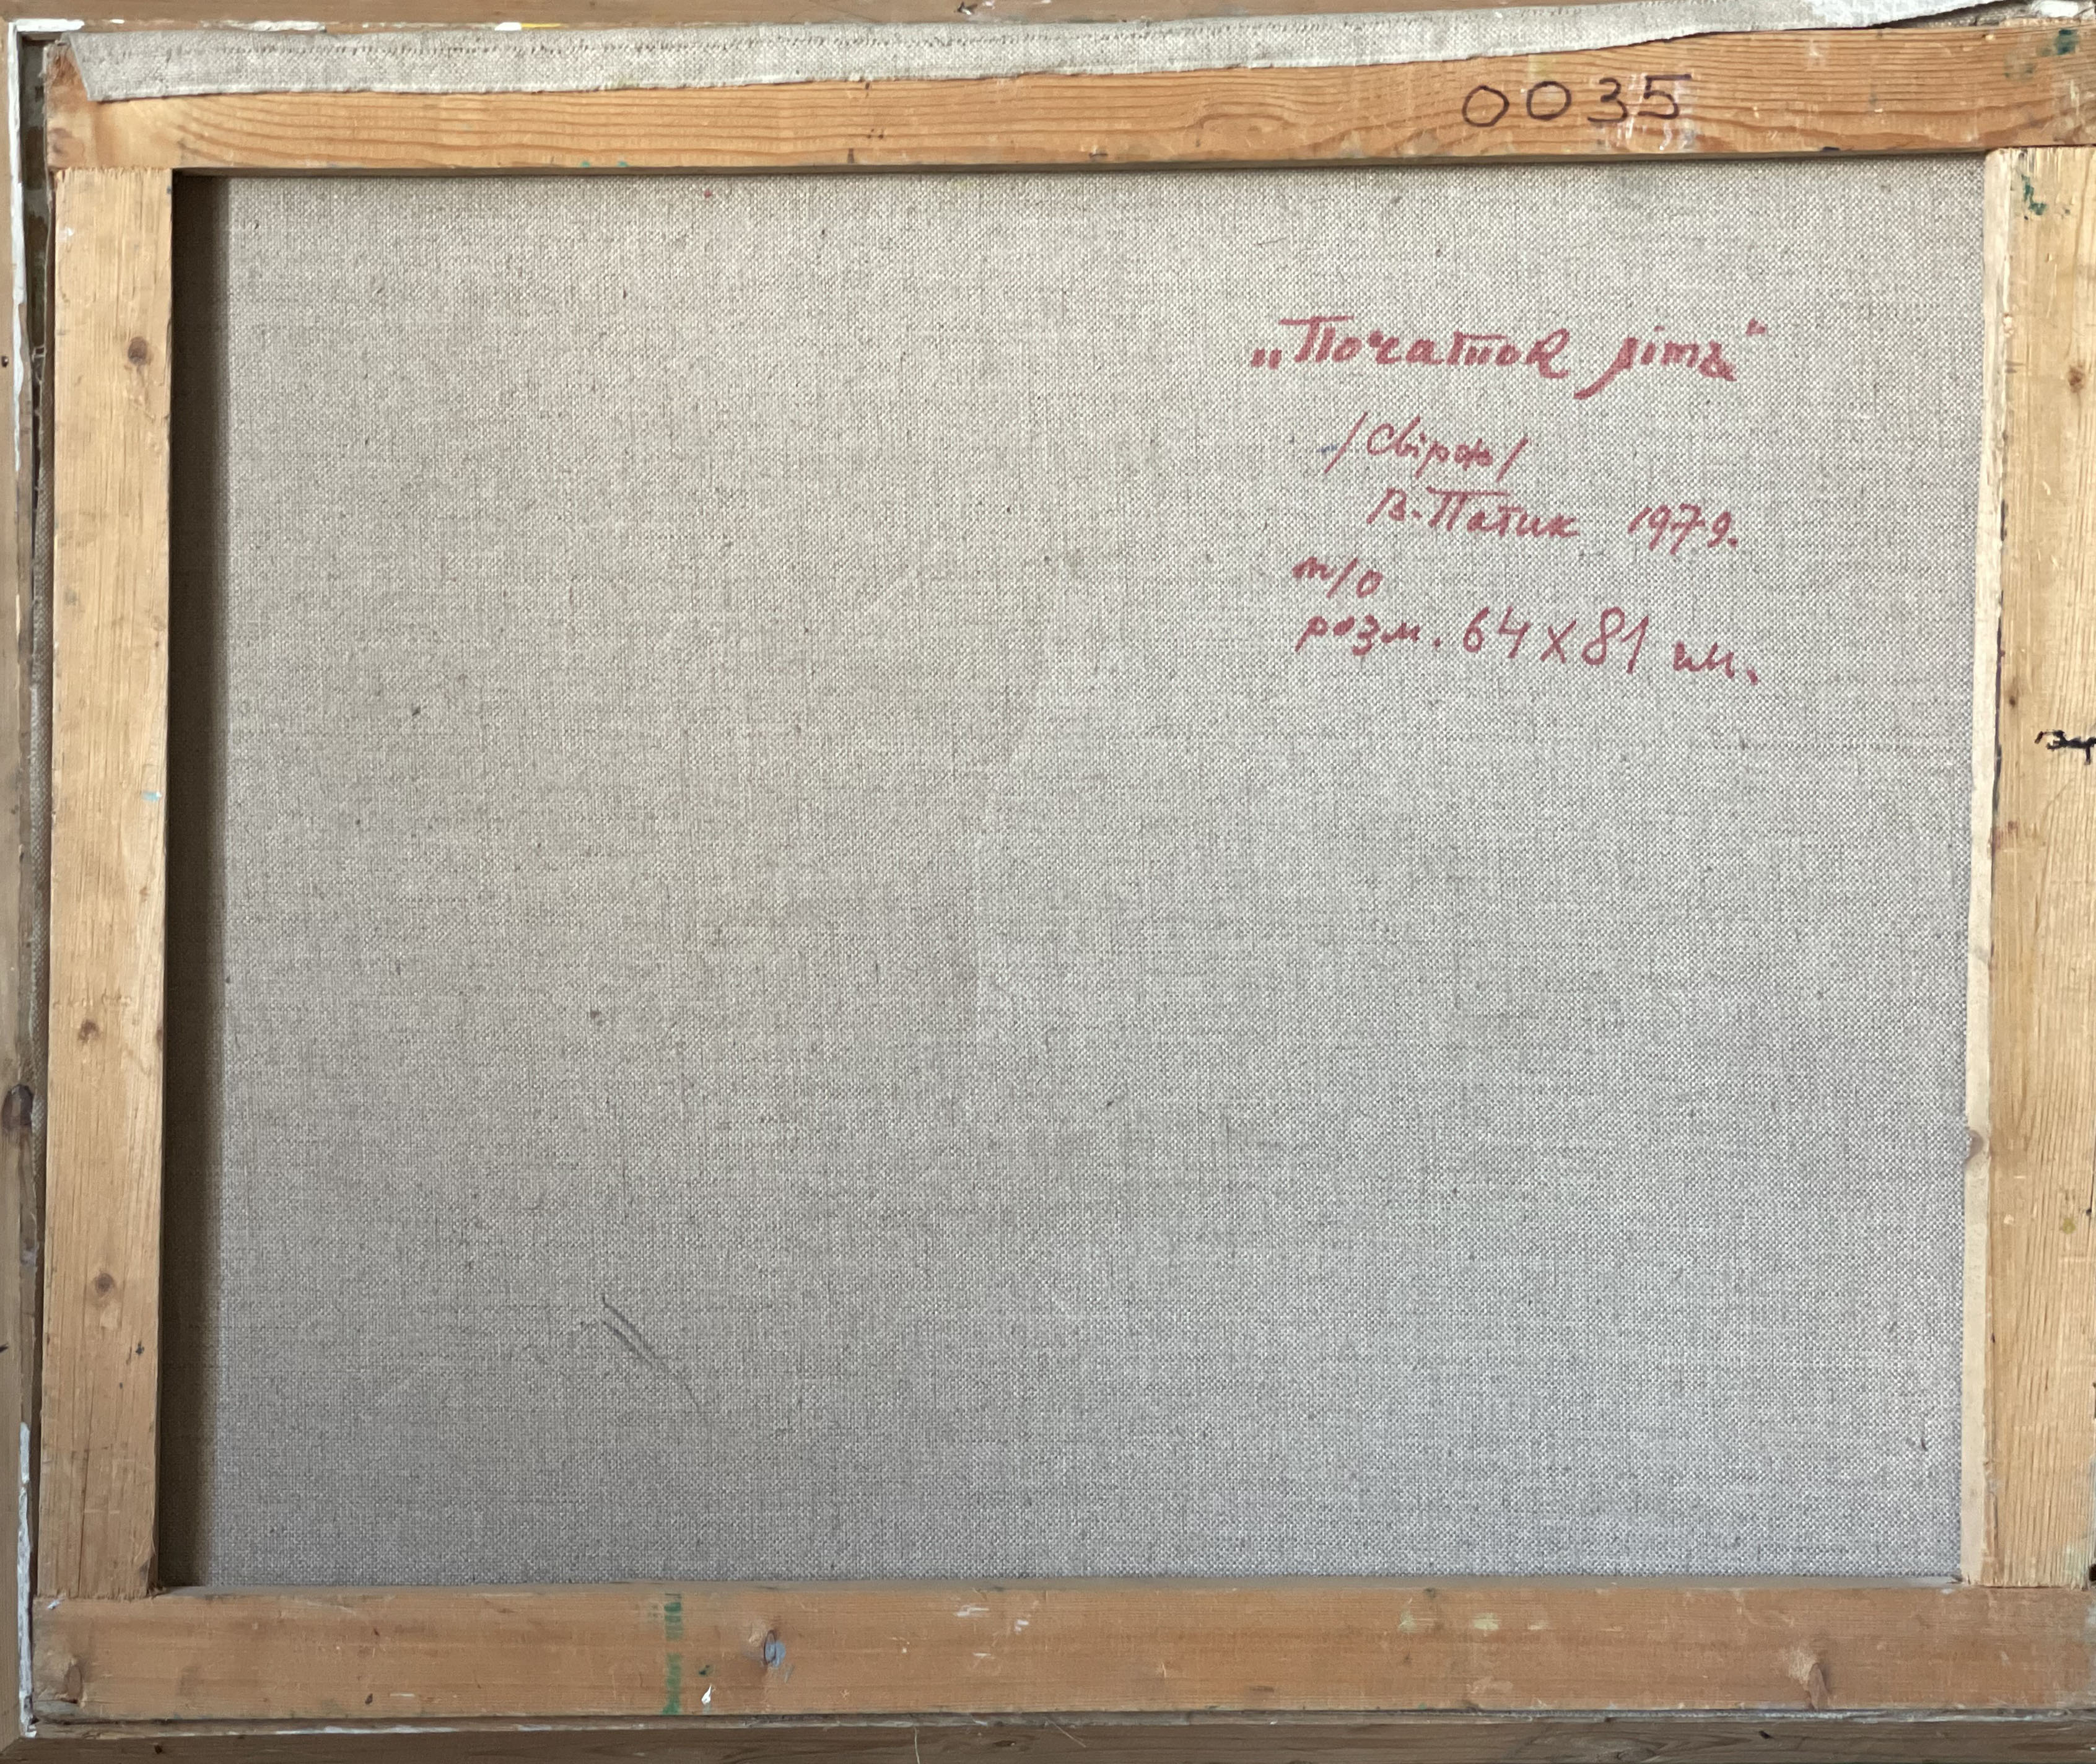 0035
„Початок літа"
/Свірж/
В. Патик 1979.
п/о
розм. 64х81 см.